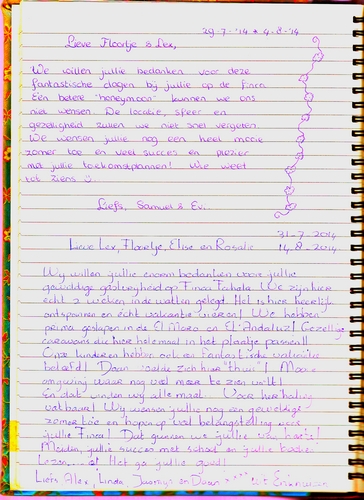 29-7-'14 * 4-8-'14
Lieve Floortje & Lex,
We willen jullie bedanken voor deze
fantastische dagen bij jullie op de Finca.
Een betere "honeymoon" kunnen we ons
niet wensen. De locatie, sfeer en
gezelligheid zullen we niet snel vergeten.
We wensen jullie nog een heel mooie
zomer toe en veel succes en plezier
met jullie toekomstplannen! Wie weet
tot ziens
Liefs, Samuel & Ev.
31-7-2014
Lieve Lex, Floortje, Elise en Rosalie 14-8-2014
Wij willen jullie enorm bedanken voor jullie
geweldige gastvrijheid op Finca. We zijn hier
echt 2 weken in de watten gelegd. Het is hier heerlijk
ontspannen en écht vakantie vieren! We hebben
prima geslapen in de El Moro en El Andaluz! Gezellige
caravans die hier helemaal in het plaatje passen!!
Onze kinderen hebben ook een fantastische vakantie
beleefd! Daan voelde zich hier "thuis"! Mooie
omgeving waar nog veel meer te zien valt!
En dat vinden wij allemaal. Voor herhaling
vatbaar! Wij wensen jullie nog een geweldige
zomer toe en hopen op veel belangstelling voor
jullie Finca! Dat gunnen we jullie van harte!
Meiden, jullie succes met school en jullie
Lezen Het ga jullie goed!
Liefs Alex, Linda, en Daan